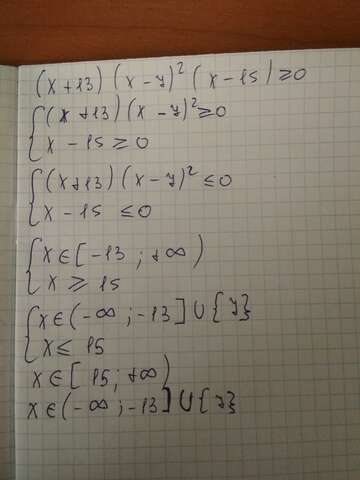 (x+13)(x-7)²(x-15)≥0
{(x+13)(x-7)²≥0
{x-15≥0
{(x+13)(x-7)²≤0
{x-15≤0
{x∈[-13;+∞)
{x≥15
{x∈(-∞;-13]∪{7}
{x≤15
x∈[15;+∞)
x∈(-∞;-13]∪{7}